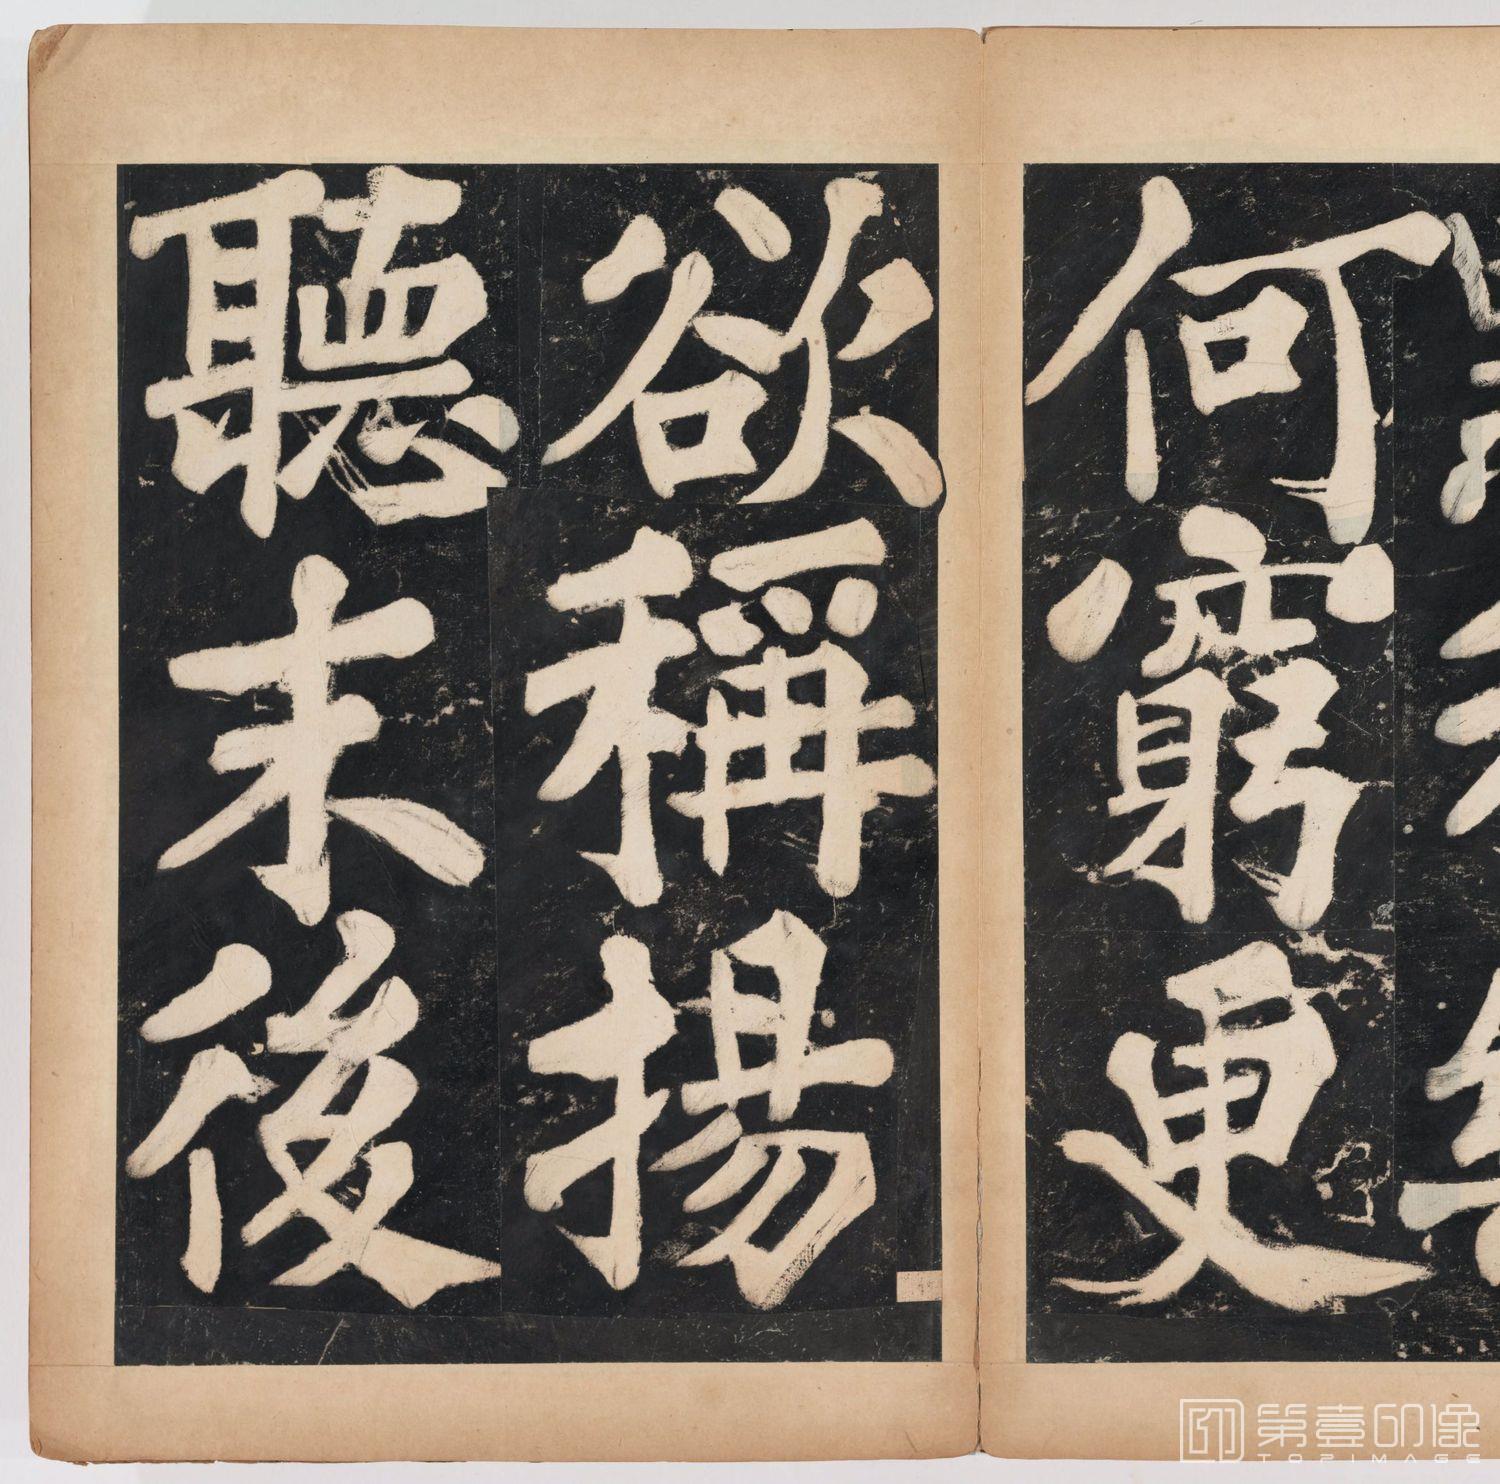 何窮更
欲稱揚
聽末後
第壹印像
TOPIMAGE